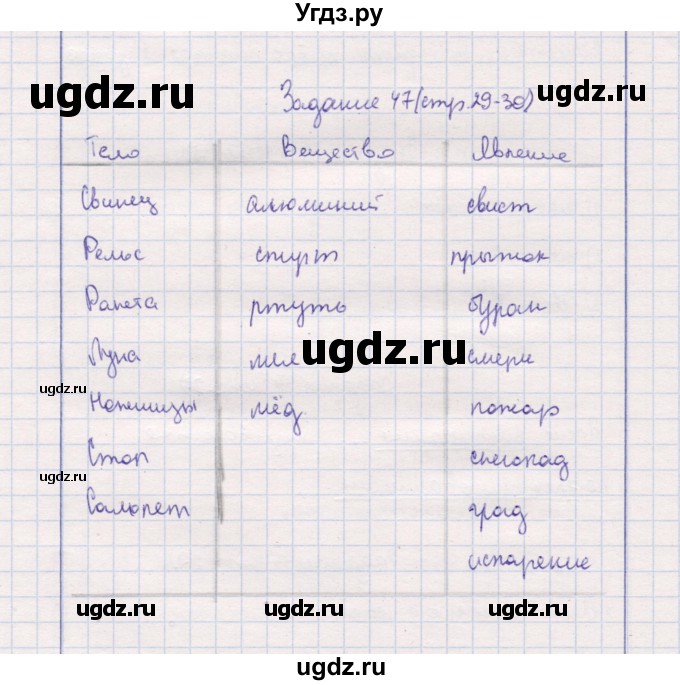 Угдз.ру
ugdz.ru
Задание 47(стр.29-30)
ugdz.ru
Тело Вещество Явление
Свинец алюминий свист
Рельс спирт прыжок
Ракета ртуть буран
ugdz.ru
Луна мел смерч
ugdz.ru
Ножницы мёд пожар
Стол снегопад
ugdz.ru
Самолет град
испарение
ugdz.ru ugdz.ru ugdz.ru
ugdz.ru